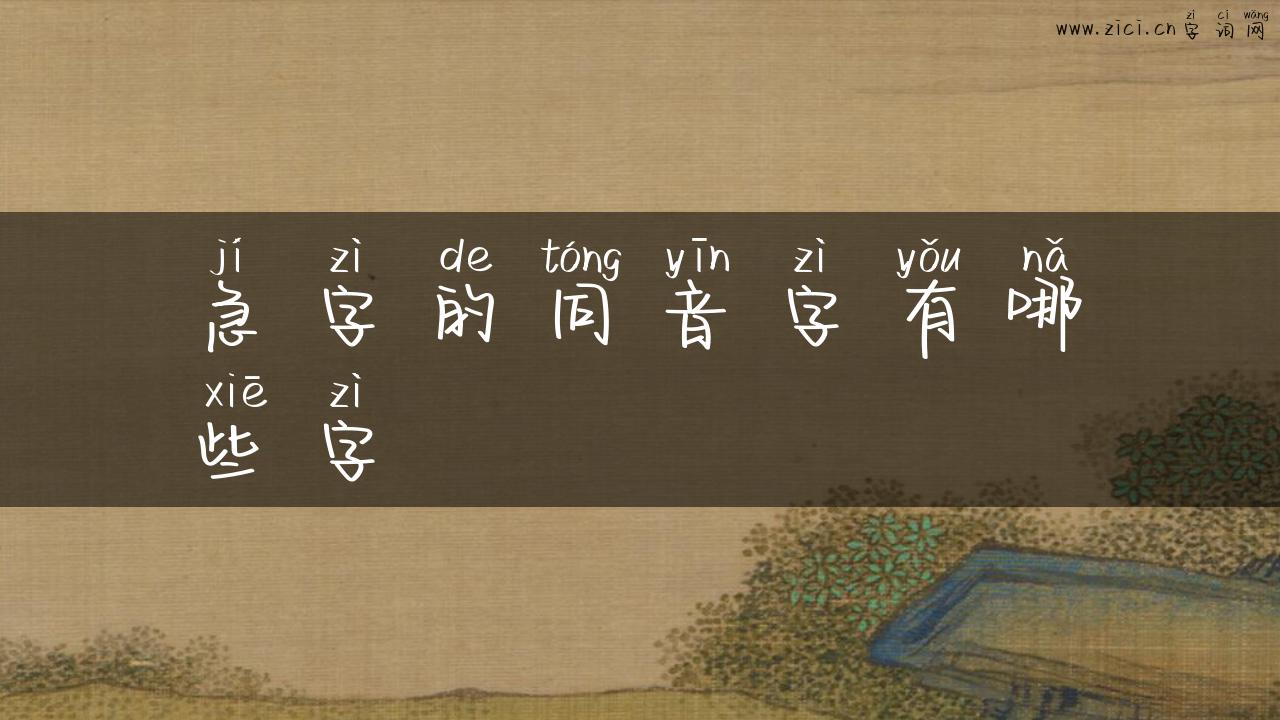 zì cí wǎng
www.zici.cn字词网
jí zì de tóng yīn zì yǒu nǎ
急字的同音字有哪
xiē zì
些字